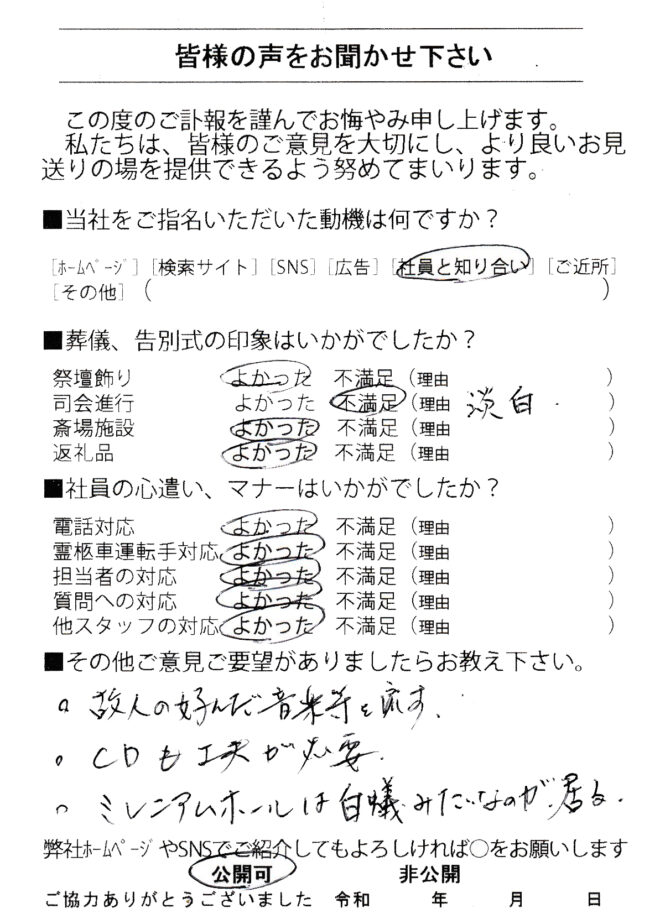 皆様の声をお聞かせ下さい
この度のご訃報を謹んでお悔やみ申し上げます。
私たちは、皆様のご意見を大切にし、より良いお見
送りの場を提供できるよう努めてまいります。
■当社をご指名いただいた動機は何ですか？
[ﾎｰﾑﾍﾟｰｼﾞ] [検索サイト] [SNS] [広告] [社員と知り合い] [ご近所]
[その他] (　　　)
■葬儀、告別式の印象はいかがでしたか？
祭壇飾り　よかった　不満足（理由　　　）
司会進行　よかった　不満足（理由　淡白．　）
斎場施設　よかった　不満足（理由　　　）
返礼品　よかった　不満足（理由　　　）
■社員の心遣い、マナーはいかがでしたか？
電話対応　よかった　不満足（理由　　　）
霊柩車運転手対応　よかった　不満足（理由　　　）
担当者の対応　よかった　不満足（理由　　　）
質問への対応　よかった　不満足（理由　　　）
他スタッフの対応　よかった　不満足（理由　　　）
■その他ご意見ご要望がありましたらお教え下さい。
。故人の好んだ音楽等を流す．
。CDも工夫が必要．
。ミレニアムホールは白蟻みたいなのが．居る．
弊社ﾎｰﾑﾍﾟｰｼﾞやSNSでご紹介してもよろしければ○をお願いします
公開可　非公開
ご協力ありがとうございました　令和　年　月　日